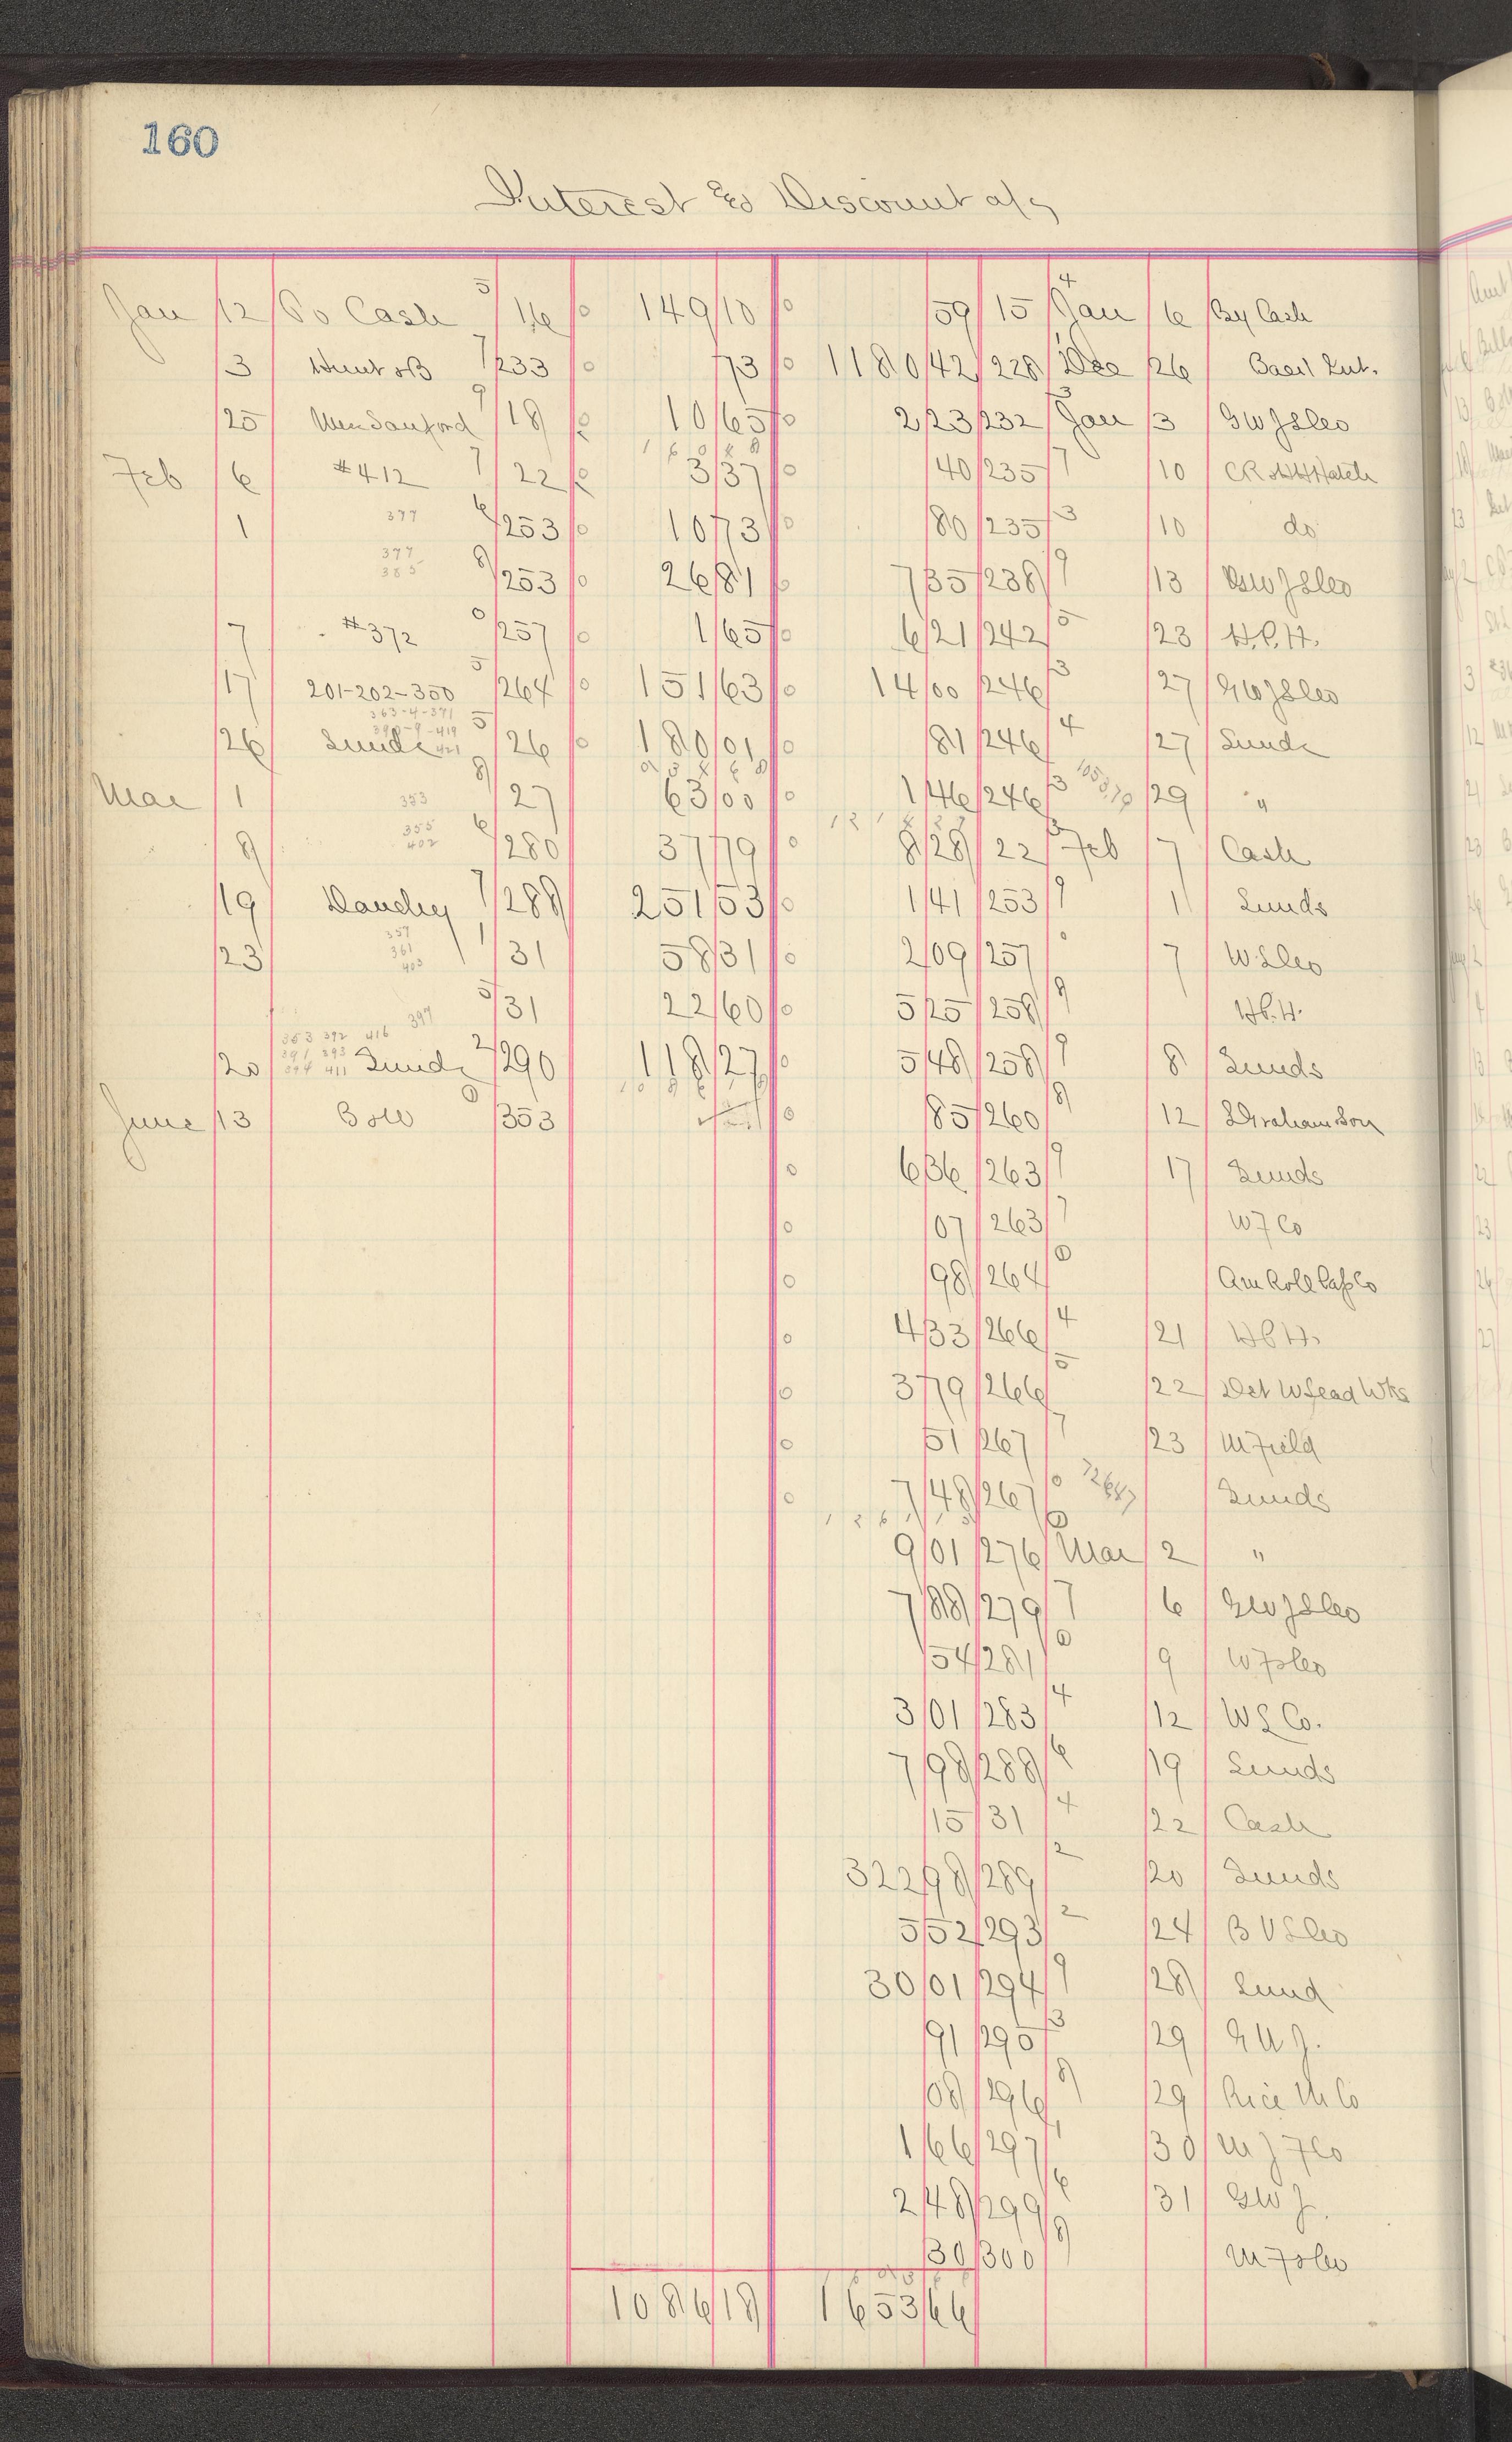 160
Interest & Discount a/c
Jan 12 To Cash 16 149 10 59 15 Jan 6 By Cash
3 233 73 1180 42 228 Dec 26
25 Wm Sanford 18 10 65 2 23 232 Jan 3 GWJ&Co
Feb 6 #412 22 3 37 40 235 10
1 377 253 10 73 80 235 10 do
377 385 253 26 81 7 35 238 13 GWJ&Co
7 #372 257 1 65 6 21 242 23 H.P.H.
17 201-202-350 264 151 63 14 00 246 27 GWJ&Co
363-4-371
26 Sunds 26 180 01 81 246 27 Sunds
Mar 1 353 27 63 00 1 46 246 29 "
8 355 402 280 37 79 8 28 22 Feb 7 Cash
19 Dauchy 288 251 53 1 41 253 1 Sunds
23 357 361 403 31 58 31 2 09 257 7 W&Co
31 22 60 5 25 258
20 Sunds 290 118 27 5 48 258 8 Sunds
June 13 353 85 260 12
6 36 263 17 Sunds
07 263 W F Co
98 264
4 33 266 21
3 79 266 22 Det W Lead Wks
51 267 23 M Field
7 48 267 Sunds
9 01 276 Mar 2 "
7 88 279 6 GWJ&Co
54 281 9
3 01 283 12 W & Co.
7 98 288 19 Sunds
15 31 22 Cash
322 98 289 20 Sunds
5 52 293 24
30 01 294 28 Sund
91 295 29 GWJ.
08 296 29 Rice M Co
1 66 297 30
2 48 299 31 GWJ.
30 300
1086 18 1653 66